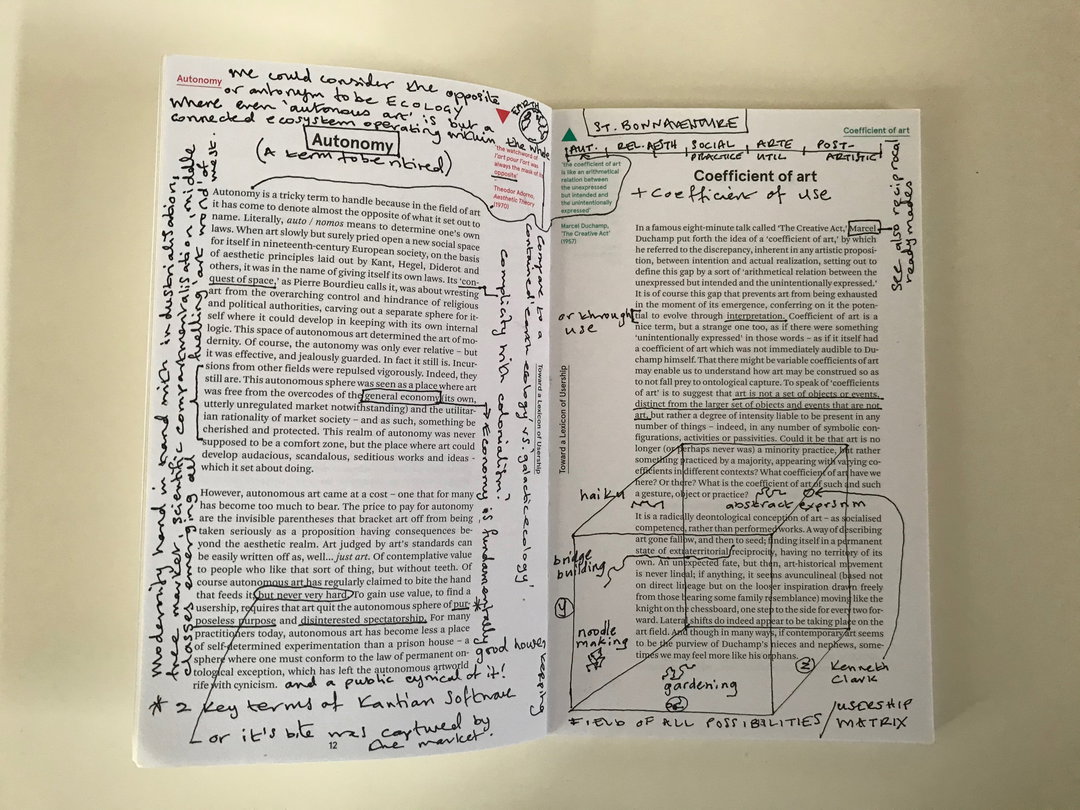 Autonomy
We could consider the opposite
or antonym to be ECOLOGY
where even 'autonomous art' is but a
connected ecosystem operating within the whole
EARTH
Autonomy
(A term to be retired)
'the watchword of
l'art pour l'art was
always the mask of its
opposite'
Theodor Adorno,
Aesthetic Theory
(1970)
Autonomy is a tricky term to handle because in the field of art
it has come to denote almost the opposite of what it set out to
name. Literally, auto / nomos means to determine one's own
laws. When art slowly but surely pried open a new social space
for itself in nineteenth-century European society, on the basis
of aesthetic principles laid out by Kant, Hegel, Diderot and
others, it was in the name of giving itself its own laws. Its 'con-
quest of space,' as Pierre Bourdieu calls it, was about wresting
art from the overarching control and hindrance of religious
and political authorities, carving out a separate sphere for it-
self where it could develop in keeping with its own internal
logic. This space of autonomous art determined the art of mo-
dernity. Of course, the autonomy was only ever relative – but
it was effective, and jealously guarded. In fact it still is. Incur-
sions from other fields were repulsed vigorously. Indeed, they
still are. This autonomous sphere was seen as a place where art
was free from the overcodes of the general economy (its own,
utterly unregulated market notwithstanding) and the utilitar-
ian rationality of market society – and as such, something be
cherished and protected. This realm of autonomy was never
supposed to be a comfort zone, but the place where art could
develop audacious, scandalous, seditious works and ideas -
which it set about doing.
However, autonomous art came at a cost – one that for many
has become too much to bear. The price to pay for autonomy
are the invisible parentheses that bracket art off from being
taken seriously as a proposition having consequences be-
yond the aesthetic realm. Art judged by art's standards can
be easily written off as, well... just art. Of contemplative value
to people who like that sort of thing, but without teeth. Of
course autonomous art has regularly claimed to bite the hand
that feeds it, but never very hard. To gain use value, to find a
usership, requires that art quit the autonomous sphere of pur-
poseless purpose and disinterested spectatorship. For many
practitioners today, autonomous art has become less a place
of self-determined experimentation than a prison house – a
sphere where one must conform to the law of permanent on-
tological exception, which has left the autonomous artworld
rife with cynicism. and a public cynical of it!
* 2 key terms of Kantian Software
or it's bite was captured by
the market.
12
modernity hand in hand with industrialisation,
free market, scientific compartmentalisation, middle
classes emerging all fuelling 'art world' of
complicity with colonialism.
Compare to a
'contained' earth ecology vs. 'galactic ecology'
→ Economy is fundamentally good house keeping
*
Toward a Lexicon of Usership
ST. BONNAVENTURE
Coefficient of art
AUT. REL. AESTH SOCIAL PRACTICE ARTE UTIL POST-ARTISTIC
'the coefficient of art
is like an arithmetical
relation between
the unexpressed
but intended and
the unintentionally
expressed'
Marcel Duchamp,
'The Creative Act'
(1957)
Coefficient of art
+ Coefficient of use
In a famous eight-minute talk called 'The Creative Act,' Marcel
Duchamp put forth the idea of a 'coefficient of art,' by which
he referred to the discrepancy, inherent in any artistic proposi-
tion, between intention and actual realization, setting out to
define this gap by a sort of 'arithmetical relation between the
unexpressed but intended and the unintentionally expressed.'
It is of course this gap that prevents art from being exhausted
in the moment of its emergence, conferring on it the poten-
tial to evolve through interpretation. Coefficient of art is a
nice term, but a strange one too, as if there were something
'unintentionally expressed' in those words – as if it itself had
a coefficient of art which was not immediately audible to Du-
champ himself. That there might be variable coefficients of art
may enable us to understand how art may be construed so as
to not fall prey to ontological capture. To speak of 'coefficients
of art' is to suggest that art is not a set of objects or events,
distinct from the larger set of objects and events that are not
art, but rather a degree of intensity liable to be present in any
number of things – indeed, in any number of symbolic con-
figurations, activities or passivities. Could it be that art is no
longer (or perhaps never was) a minority practice, but rather
something practiced by a majority, appearing with varying co-
efficients in different contexts? What coefficient of art have we
here? Or there? What is the coefficient of art of such and such
a gesture, object or practice?
It is a radically deontological conception of art – as socialised
competence, rather than performed works. A way of describing
art gone fallow, and then to seed; finding itself in a permanent
state of extraterritorial reciprocity, having no territory of its
own. An unexpected fate, but then, art-historical movement
is never lineal; if anything, it seems avunculineal (based not
on direct lineage but on the looser inspiration drawn freely
from those bearing some family resemblance) moving like the
knight on the chessboard, one step to the side for every two for-
ward. Lateral shifts do indeed appear to be taking place on the
art field. And though in many ways, if contemporary art seems
to be the purview of Duchamp's nieces and nephews, some-
times we may feel more like his orphans.
see also reciprocal
readymades
or through
use
Toward a Lexicon of Usership
haiku
abstract exprsnm
bridge
building
y
noodle
making
gardening
x
z
Kenneth
Clark
FIELD OF ALL POSSIBILITIES / USERSHIP
MATRIX